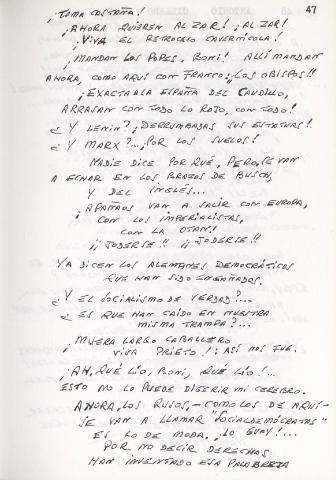 47
¡TOMA CASTAÑA!
¡AHORA QUIEREN AL ZAR! ¡AL ZAR!
¡VIVA EL RETROCESO CAVERNÍCOLA!
¡MANDAN LOS POPES, BONI! ALLÍ MANDAN
AHORA, COMO AQUÍ CON FRANCO: ¡LOS OBISPOS!!
¡EXACTA A LA ESPAÑA DEL CAUDILLO,
ARRASAN CON TODO LO ROJO, CON TODO!
¿Y LENIN? ¡DERRUMBADAS SUS ESTATUAS!
¿Y MARX?... ¡POR LOS SUELOS!
NADIE DICE POR QUÉ, PERO, SE VAN
A ECHAR EN LOS BRAZOS DE BUSCH,
Y DEL INGLÉS...
¡APAÑAOS VAN A SALIR CON EUROPA,
CON LOS IMPERIALISTAS,
CON LA OTAN!
¡¡JODERSE!! ¡¡JODERSE!!
YA DICEN LOS ALEMANES DEMOCRÁTICOS
QUE HAN SIDO ENGAÑADOS.
¿Y EL SOCIALISMO DE VERDAD?...
¿ES QUE HAN CAÍDO EN NUESTRA
MISMA TRAMPA?...
¡MUERA LARGO CABALLERO
VIVA PRIETO!; ASÍ NOS FUE.
¡AH, QUÉ LÍO, BONI, QUÉ LÍO!...
ESTO NO LO PUEDE DIGERIR MI CEREBRO.
AHORA, LOS RUSOS, - COMO LOS DE AQUÍ -
SE VAN A LLAMAR "SOCIALDEMÓCRATAS"
ES LO DE MODA, ¡LO GUAY!...
POR NO DECIR DERECHAS
HAN INVENTADO ESA PALABREJA